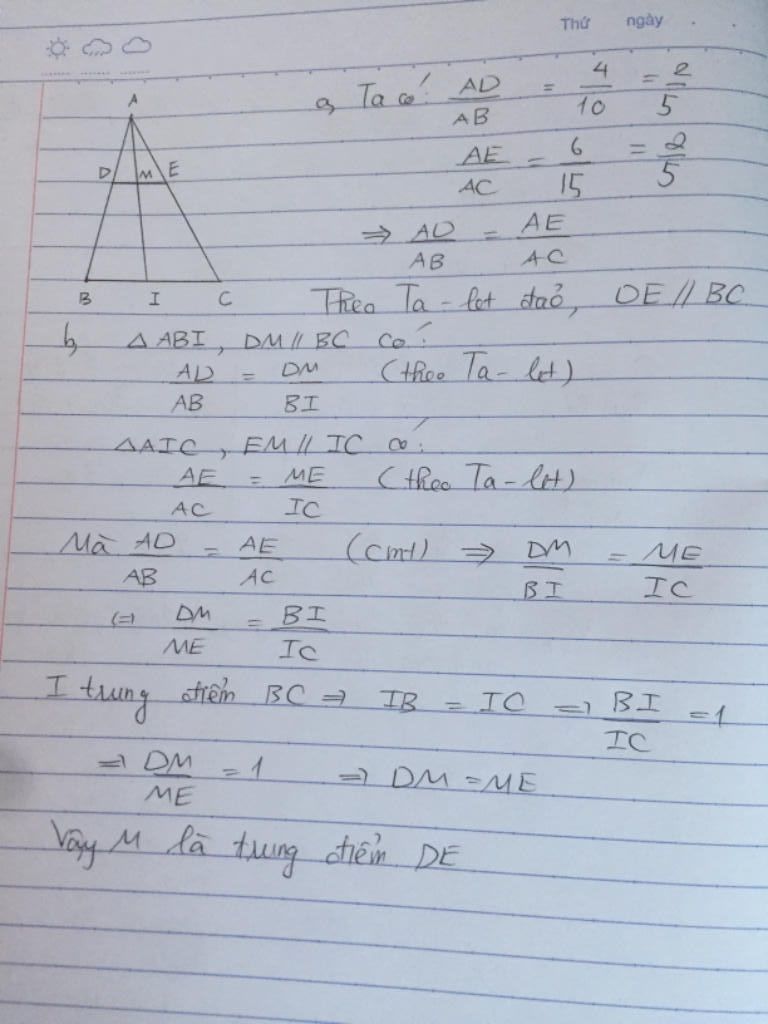 Thứ ngày . .
A
D M E
B I C
a, Ta có: AD/AB = 4/10 = 2/5
AE/AC = 6/15 = 2/5
⇒ AD/AB = AE/AC
Theo Ta-let đảo, DE // BC
b, △ABI, DM // BC có:
AD/AB = DM/BI (theo Ta-let)
△AIC, EM // IC có:
AE/AC = ME/IC (theo Ta-let)
Mà AD/AB = AE/AC (cmt) ⇒ DM/BI = ME/IC
(=) DM/ME = BI/IC
I trung điểm BC ⇒ IB = IC ⇒ BI/IC = 1
⇒ DM/ME = 1 ⇒ DM = ME
Vậy M là trung điểm DE